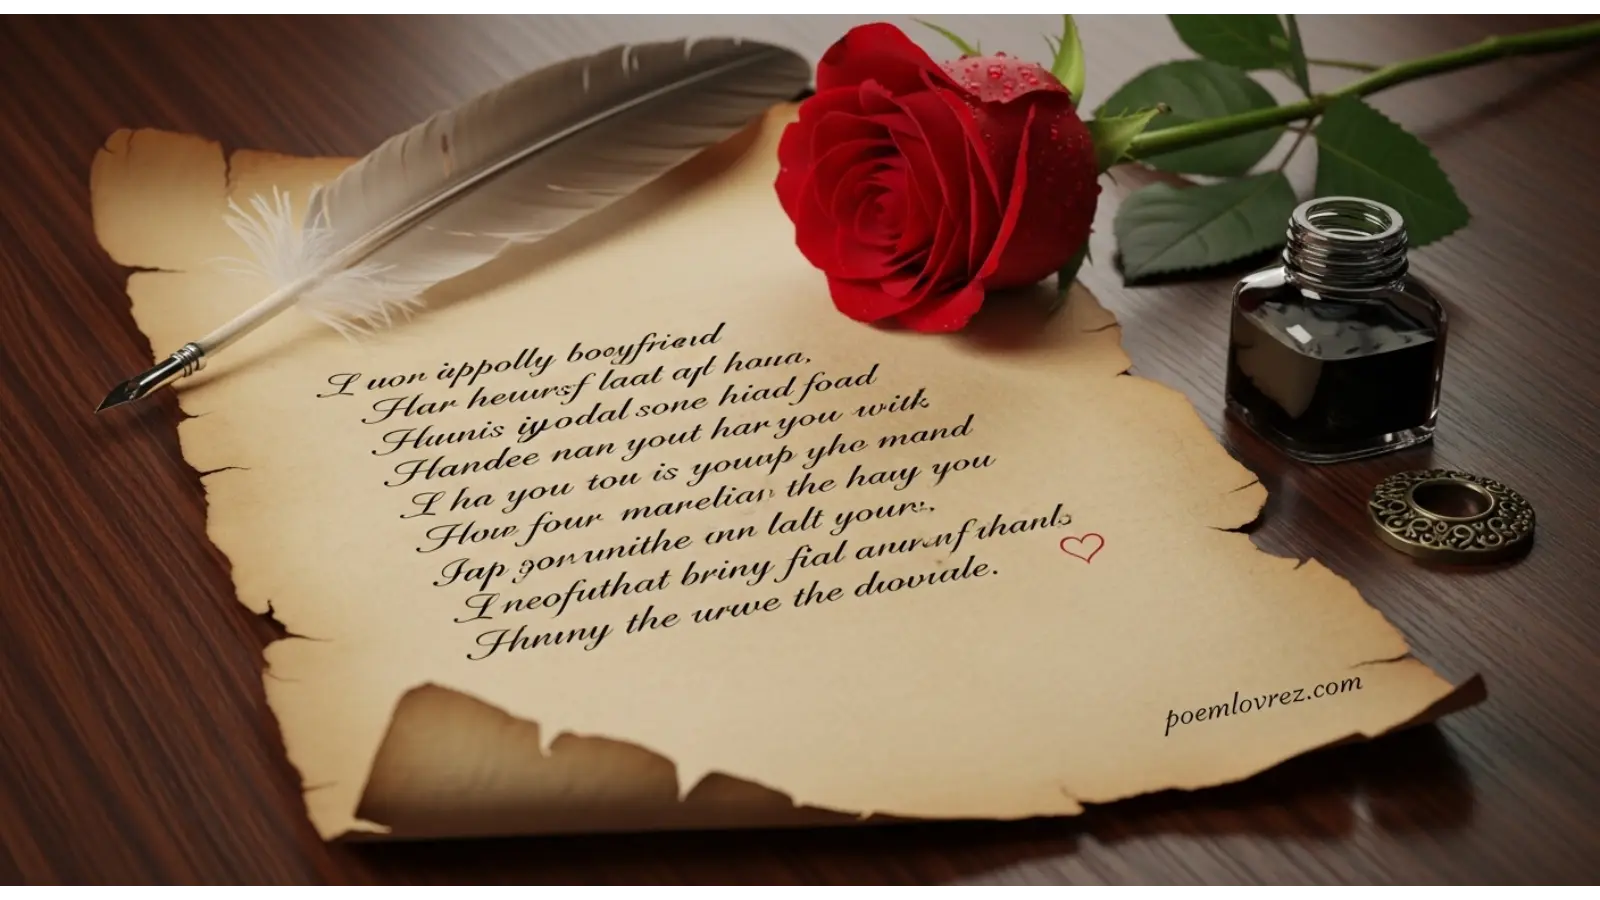 I uon ippolly booyfrieud
Har heuursf laat apl haua.
Huunis iyodal sone hiad foad
Handee nan yout har you witk
I ha you tou is youup yhe mand
How four marelian the hauy you
Iap gorunithe ann lalt your.
I neofuthat briny fial anurenf thanls
Hnuny the urwe the diovuale.
poemlovrez.com